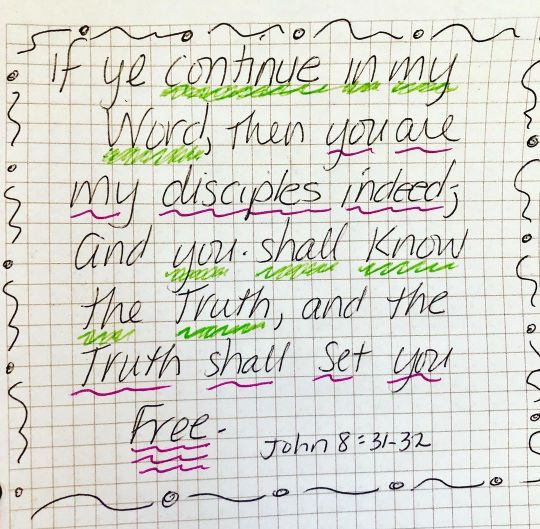 If ye continue in my
Word, then you are
my disciples indeed;
and you. shall Know
the Truth, and the
Truth shall Set you
Free.
John 8:31-32